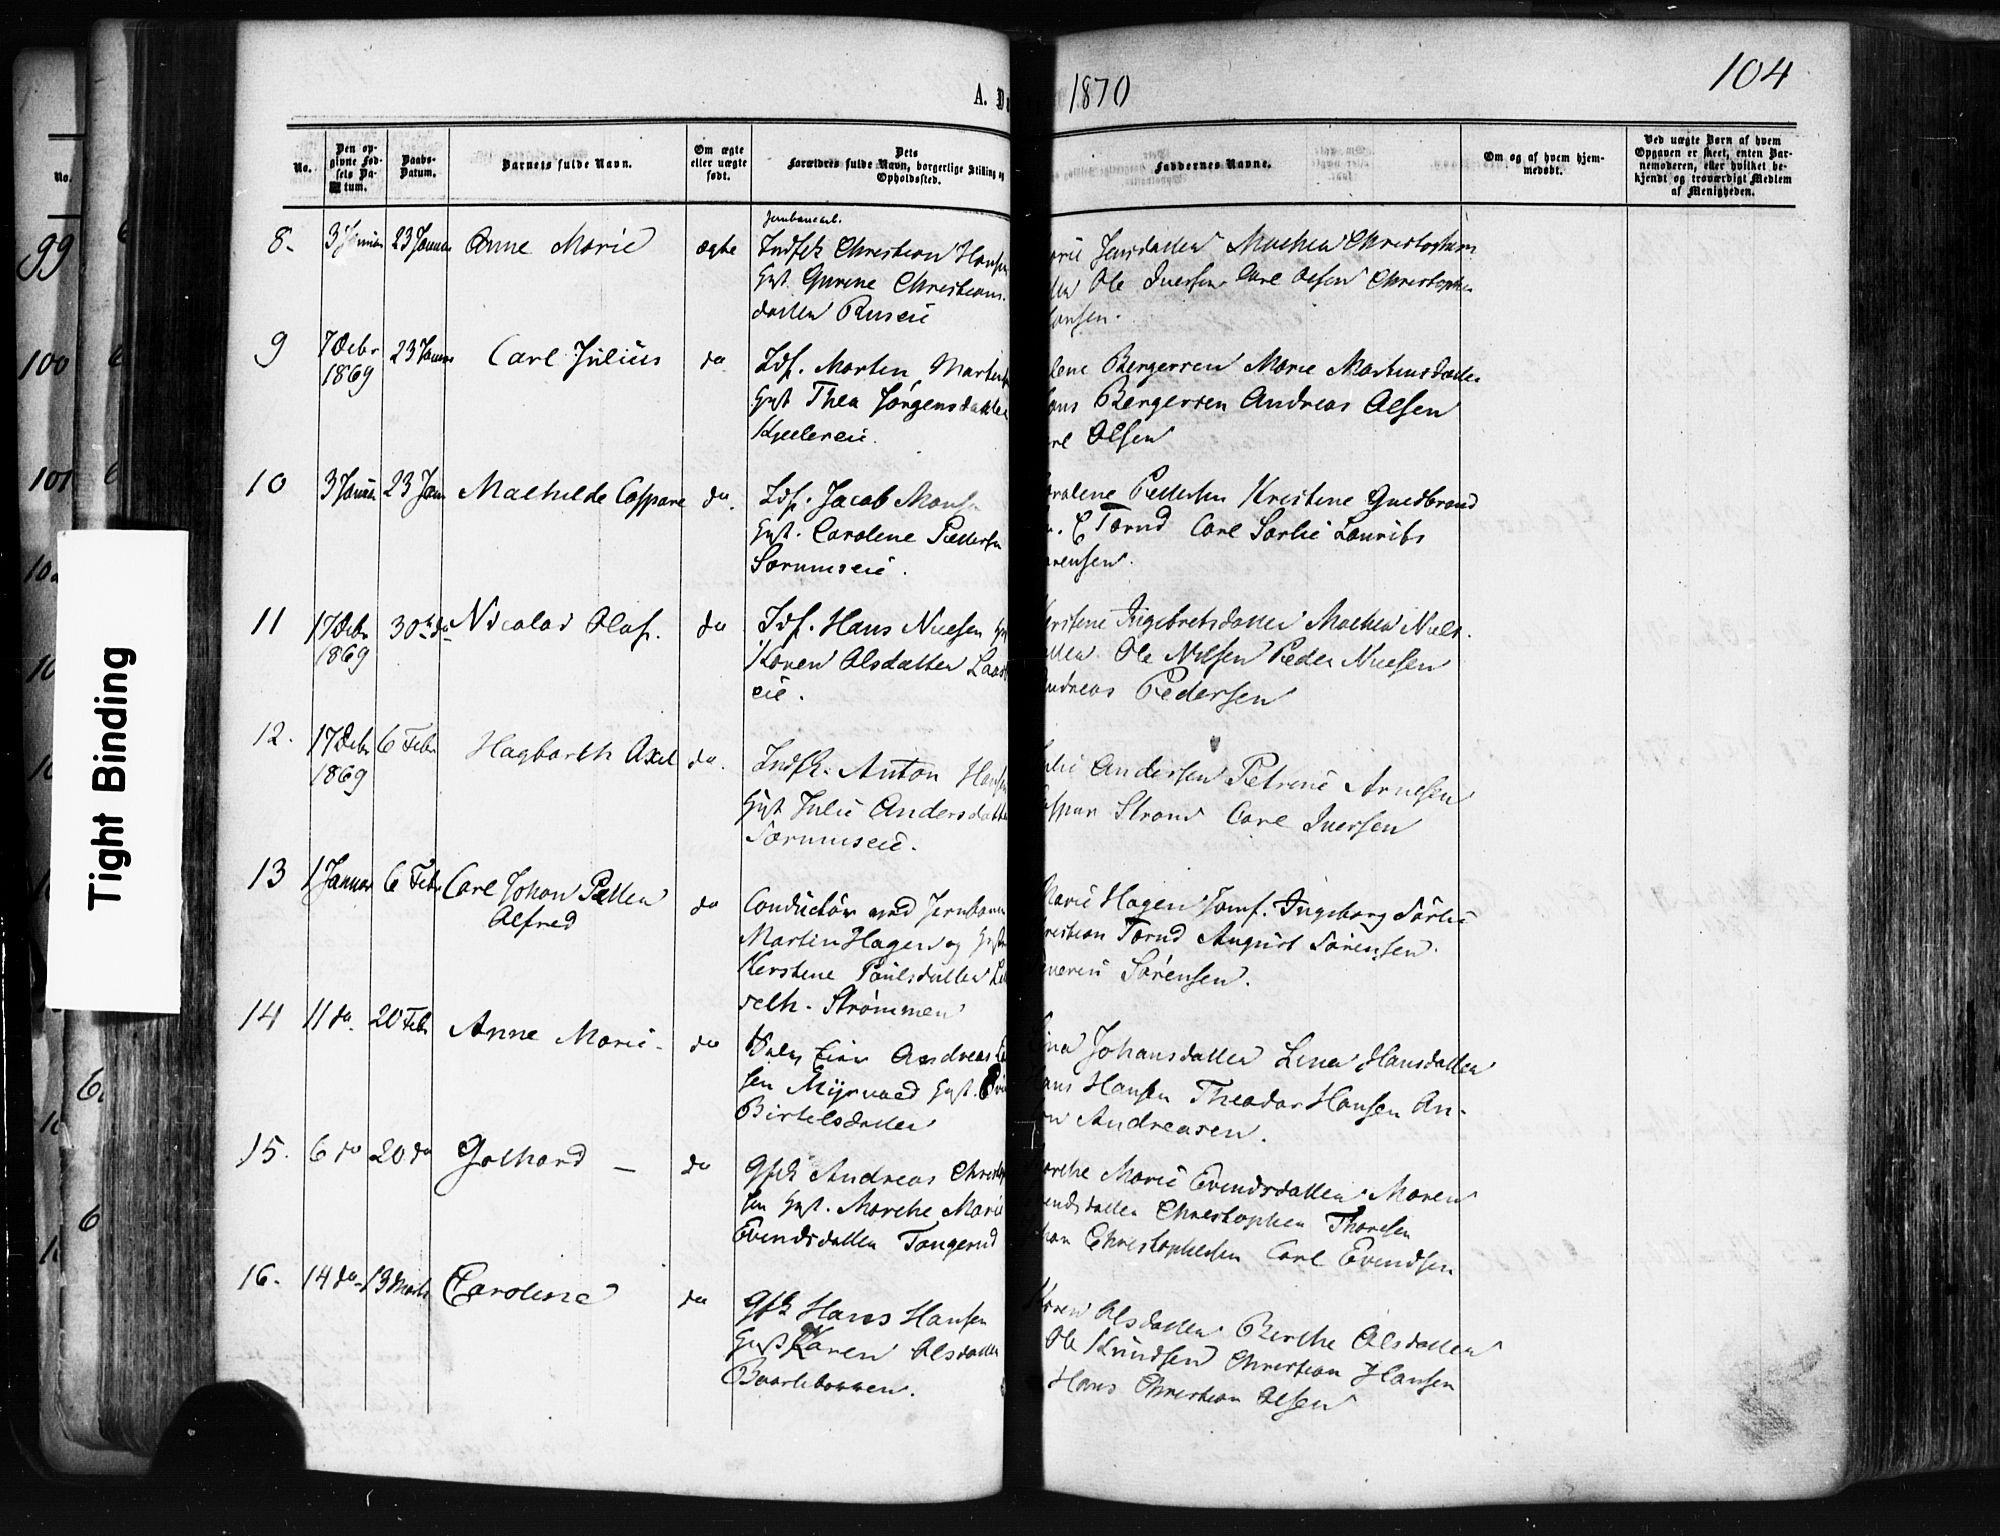 104
A. D 1870
No.
Den opgivne Fødsels Datum.
Daabs-Datum.
Barnets fulde Navn.
Om ægte eller uægte født.
Dets Forældres fulde Navn, borgerlige Stilling og Opholdssted.
Faddernes Navne.
Om og af hvem hjemmedøbt.
Ved uægte Børn af hvem Opgaven er skeet, enten Barnemoderen, eller hvilket bekjendt og troværdigt Medlem af Menigheden.
8- 3 Januar 23 Januar Anne Marie ægte
Indsk Christian Hansen
Hust. Gurine Christians
datter Ruseie
Jensdatter Mathea Christophers
Ole Iversen Carl Olsen Christophe
Hansen.
9 7 Decbr 1869 23 Januar Carl Julius do
Idf. Morten Martins
Hust Thea Jørgensdatter
Kjellereie.
Bergersen Marie Martinsdatter
Bergersen Andreas Olsen
Olsen
10 3 Januar 23 Jan Mathilde Caspare do.
Idf. Jacob Mons
Hust. Caroline Pedersen
Sørumseie.
Pedersen Kristine Guldbrand
E Tærud Carl Sørlie Laurits
rensen.
11 17 Decbr 1869 30te do Nicolai Olaf. do
Idf. Hans Nielsen
Karen Olsdatter
eie.
Ingebretsdatter Mathea Niels
Ole Nilsen Peder Nielsen
Andreas Pedersen
12. 17 Decbr 1869 6 Febr Hagbarth Axel do.
Indsk. Anton Hansen
Hust Julie Andersdatter
Sørumseie.
Julie Andersen Petrine Arnesen
Caspar Strand Carl Iversen
13 1 Januar 6 Febr Carl Johan Petter
Alfred do
Conductør ved Jernbanen
Martin Hagen og
Kerstine Paulsdatter
seth. Strømmen
Marie Hagen Jomf. Ingeborg Sørlie
Kristian Tærud August Sørensen.
Sørensen.
14 11 do 20 Febr Anne Marie- do
Andreas
sen Myrvold Hust.
Birtelsdatter
Johansdatter Lina Hansdatter
Hans Hansen Theodor Hansen An-
Andreasen.
15. 6 do 20 do Gothard - do
Gfsk Andreas Christoph
sen Hust. Marthe Marie
Evendsdatter Tangerud
Marthe Marie Evendsdatter Maren
Evendsdatter Christopher Thoresen
Christophersen Carl Evendsen
16- 14 do- 13 Marts Caroline do
Gfsk Hans Hansen
Hust Karen Olsdatter
Karen Olsdatter Birthe Olsdatter
Ole Knudsen Christian Hansen
Hans Christian Olsen
99
100
101
Tight Binding